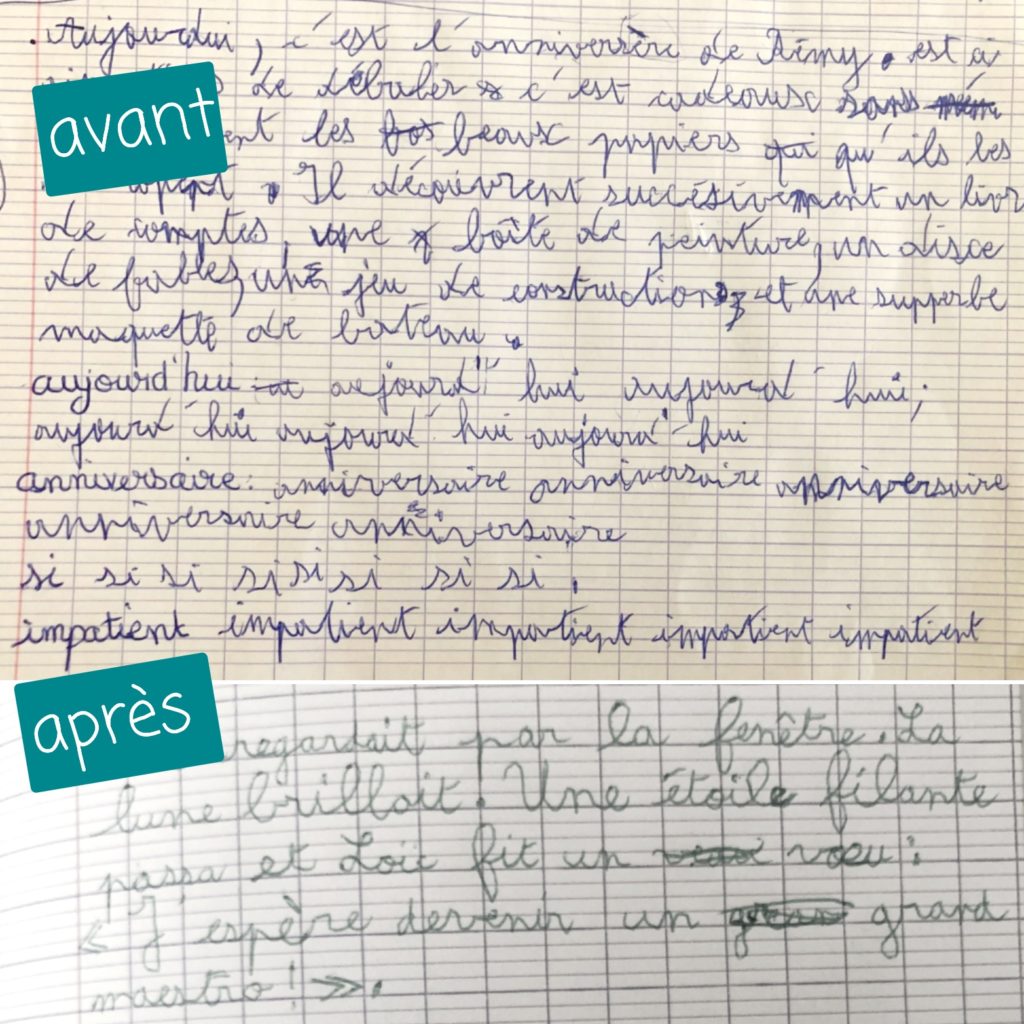 . Aujourdui, c'est l'anniversère de Rémy. est à
avant
de débaler c'est cadeousc sans
les beausc papiers qu'ils les
. Il découvrent succésivement un livr
de comptes, une boîte de peinture, un disce
de fables, un jeu de construction, et une supperbe
maquette de bateau.
aujourd'hui aujourd'hui aujourd'hui;
aujourd'hui aujourd'hui aujourd'hui
anniversaire: anniversaire anniversaire anniversaire
anniversaire anniversaire
si si si si si si si si.
impatient impatient impatient impatient impatient
après
regardait par la fenêtre. La
lune brillait. Une étoile filante
passa et Loïc fit un voeu:
« J'espère devenir un grand
maestro! ».